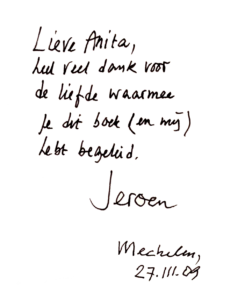 Lieve Anita,
heel veel dank voor
de liefde waarmee
je dit boek (en mij)
hebt begeleid.
Jeroen
Mechelen,
27.III.09